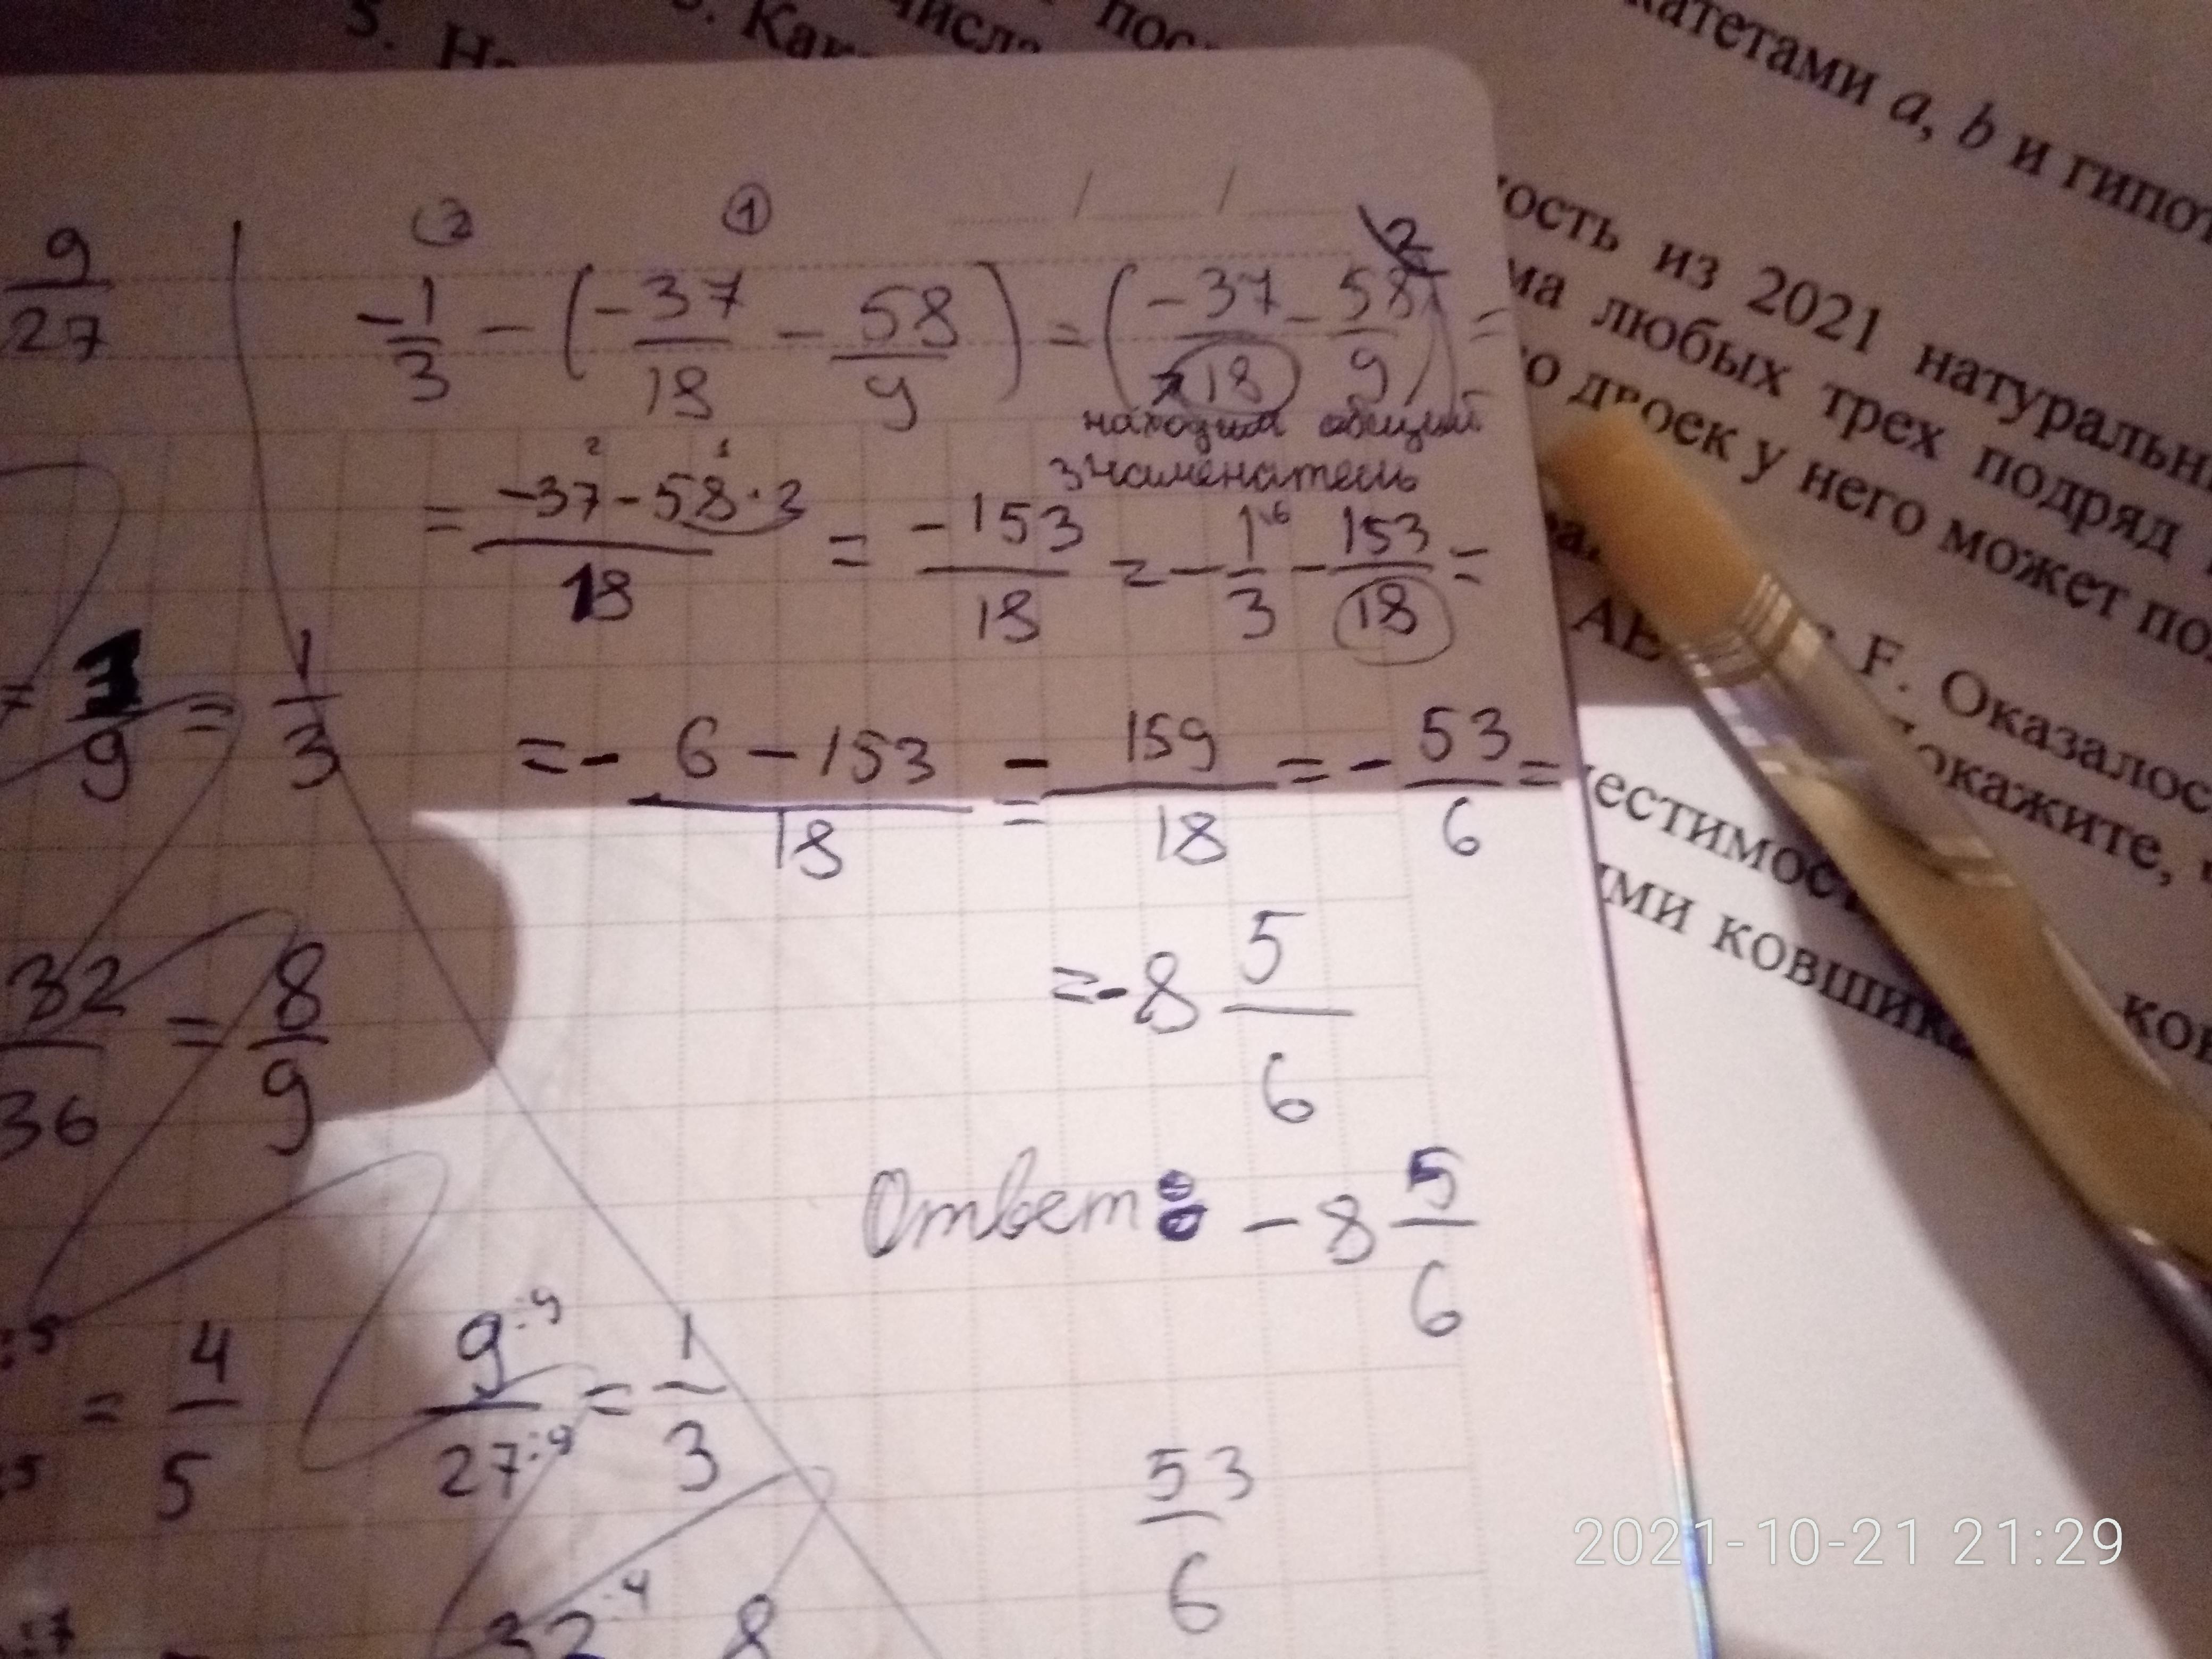 5. На
Как
числа
пос
катетами a, b и гипот
ость из 2021 натуральн
ма любых трех подряд
о двоек у него может по
AB
F. Оказалос
окажите,
местимос
ими ковшика
ков
9/27
② ①
-1/3 - (-37/18 - 58/9) = (-37/18 - 58/9) =
находим общий
знаменатель
= -37-58·2/18 = -153/18 = -1/3 - 153/18 =
= 3/9 = 1/3
= - 6-153/18 = - 159/18 = - 53/6 =
= -8 5/6
32/36 = 8/9
Ответ: -8 5/6
:5
= 4/5
9:9/27:9 = 1/3
53/6
32:4 8
:7
2021-10-21 21:29